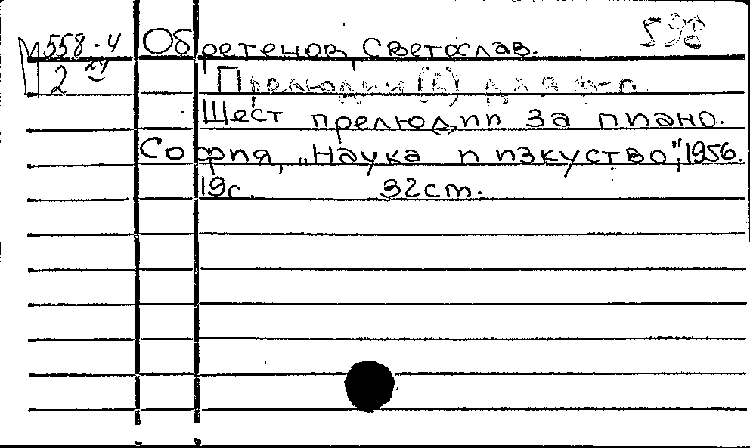 М558-4 Обретенов, Светослав. 598
2
Прелюдии (6) для ф-п.
Шест прелюдии за пиано.
София, „Наука и изкуство", 1956.
19с. 32ст.